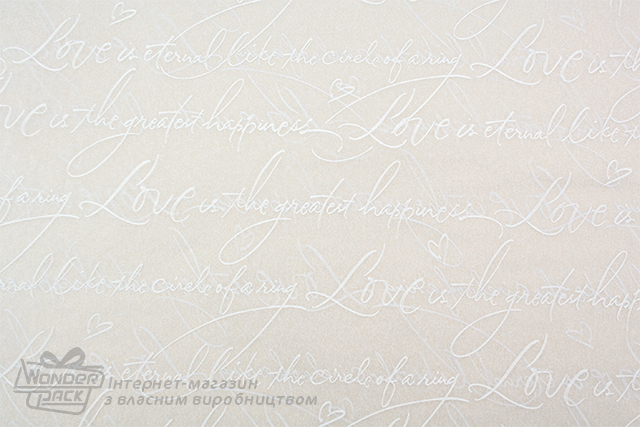 Love is eternal like the circle of a ring Love is the
Love is the greatest happiness Love is eternal like
of a ring Love is the greatest happiness Love is
eternal like the circle of a ring Love is the greatest happ
eternal like the circle of a ring Love is the
WONDER PACK
Інтернет-магазин
з власним виробництвом